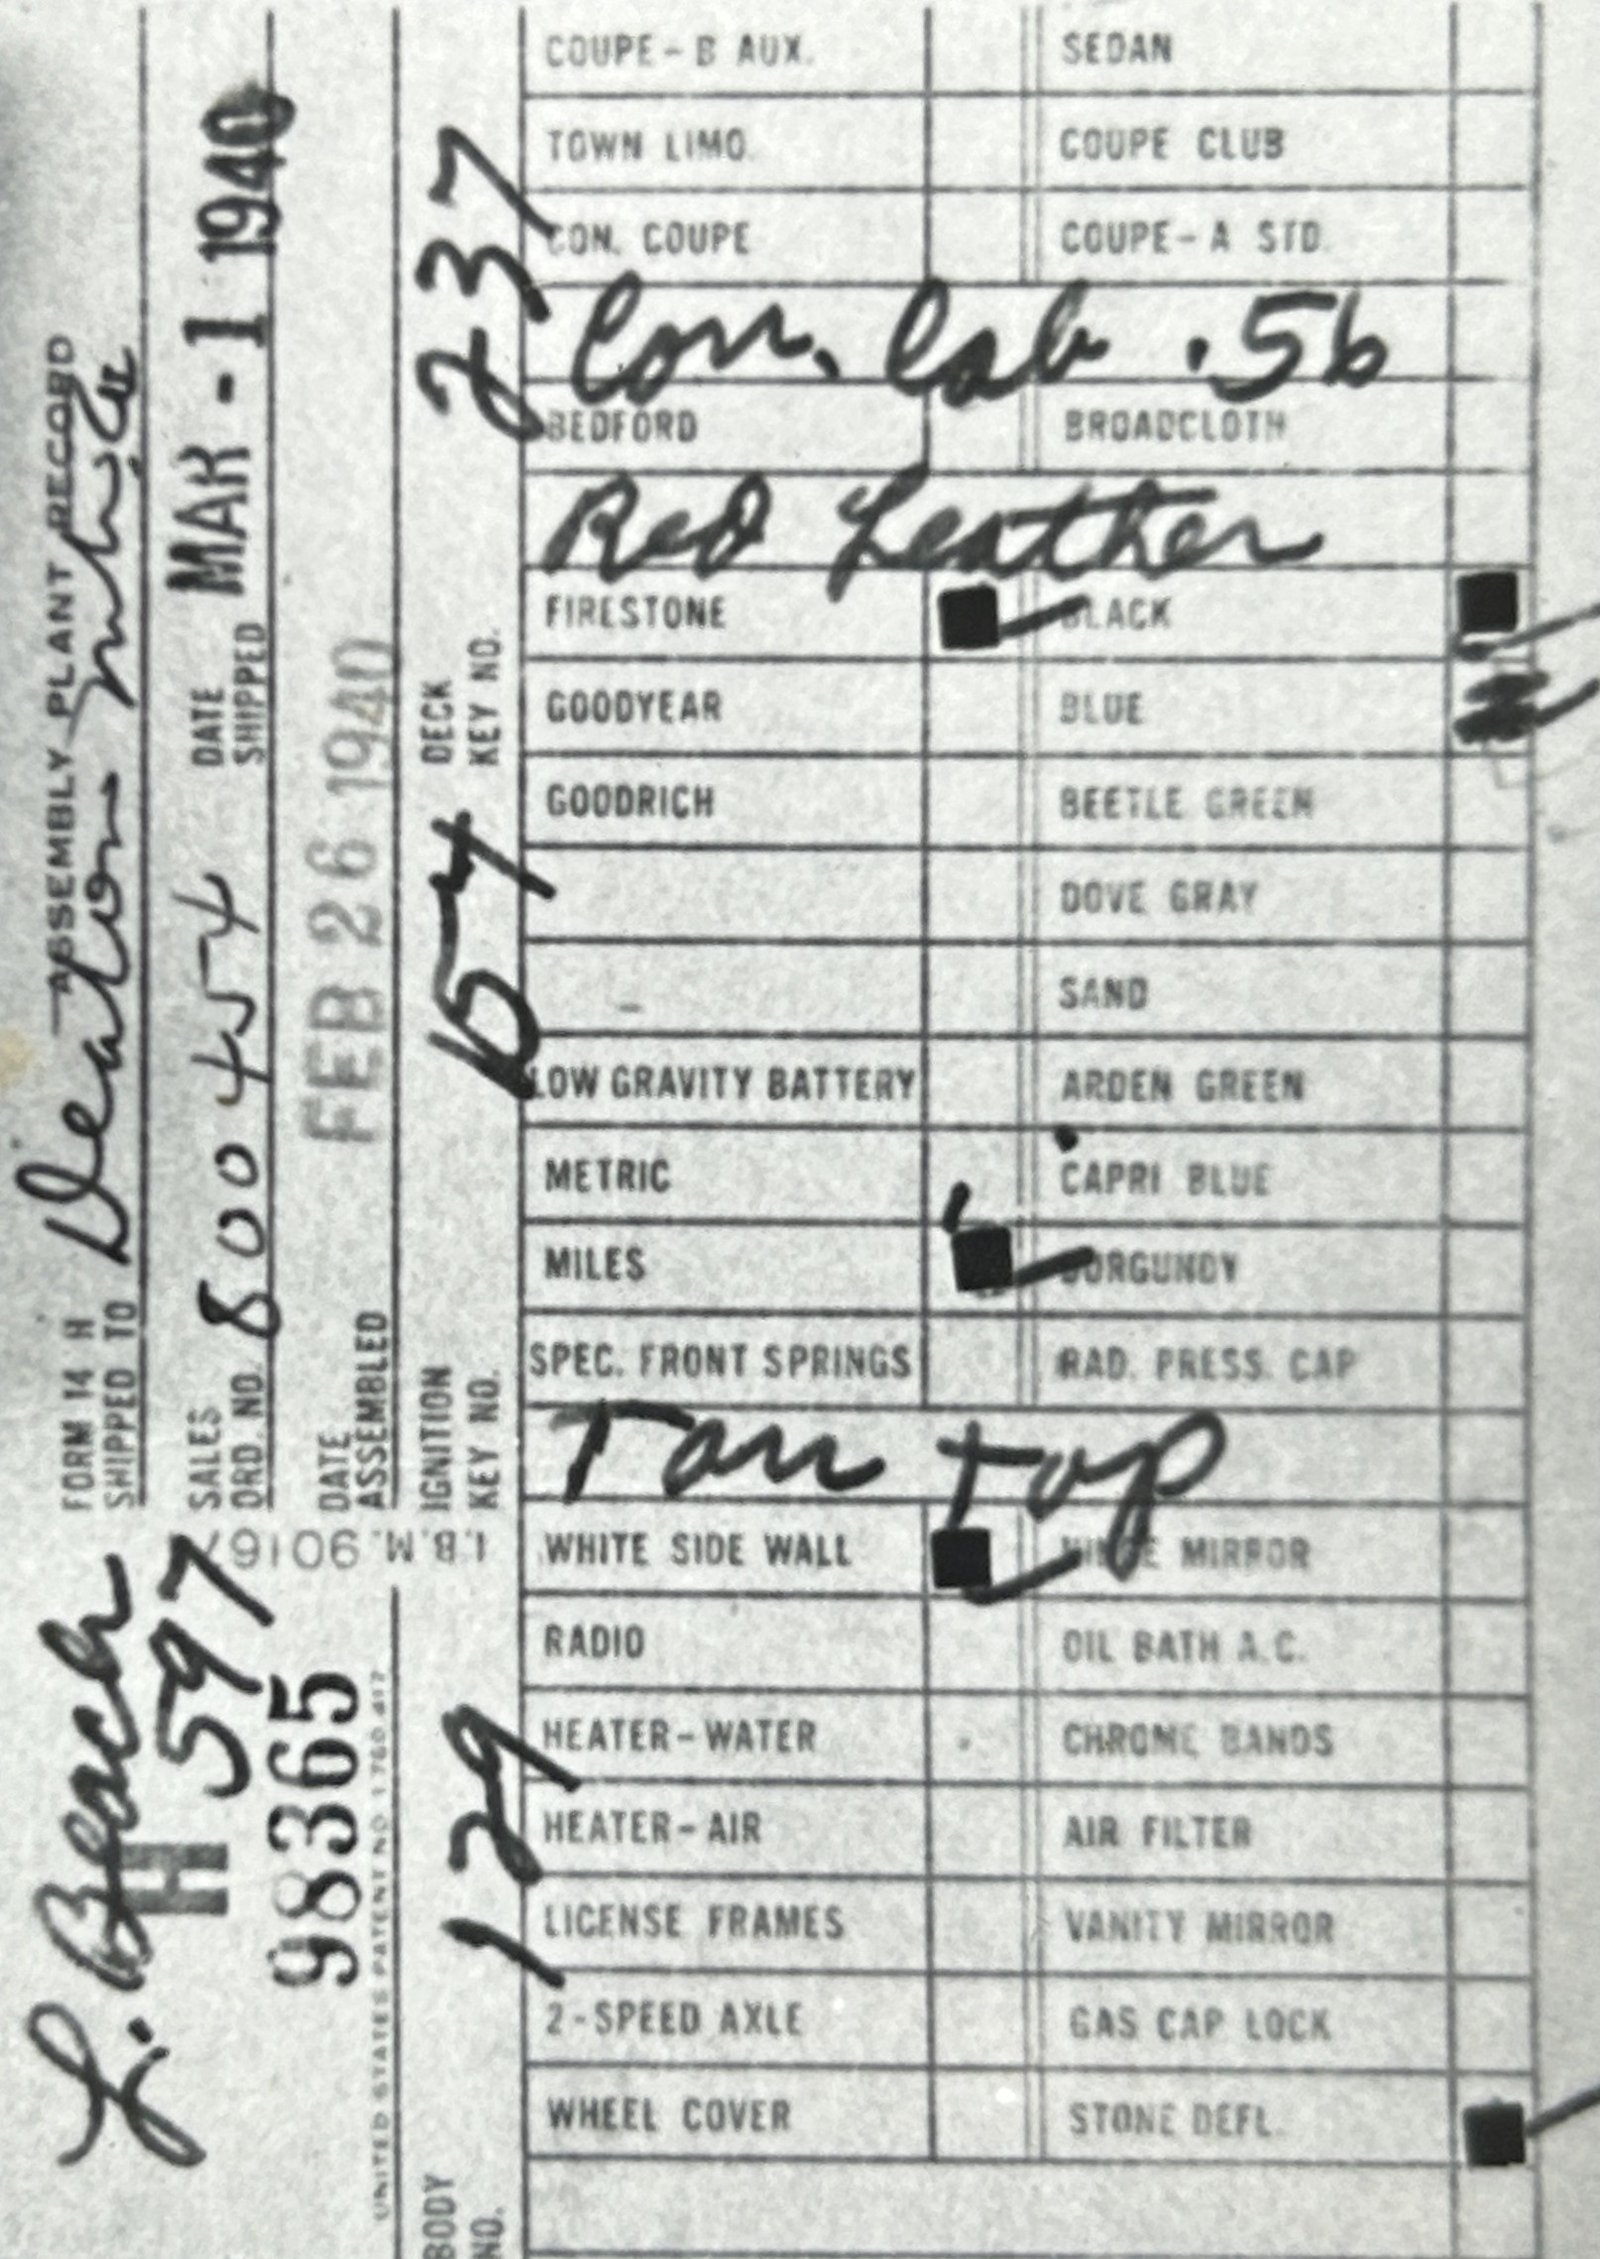 FORM 14 H ASSEMBLY PLANT RECORD
SHIPPED TO Deaton
SALES ORD. NO. 800454 DATE SHIPPED MAR - 1 1940
DATE ASSEMBLED FEB 26 1940
IGNITION KEY NO. DECK KEY NO. 237
L. Beach
H 597
98365
I.B.M. 90167
UNITED STATES PATENT NO. 1 760 417
BODY NO. 129
COUPE - B AUX. SEDAN
TOWN LIMO. COUPE CLUB
CON. COUPE COUPE - A STD.
Con. Cab. 56
BEDFORD BROADCLOTH
Red Leather
FIRESTONE BLACK
GOODYEAR BLUE
GOODRICH BEETLE GREEN
DOVE GRAY
SAND
LOW GRAVITY BATTERY ARDEN GREEN
METRIC CAPRI BLUE
MILES BURGUNDY
SPEC. FRONT SPRINGS RAD. PRESS. CAP
Tan top
WHITE SIDE WALL HINGE MIRROR
RADIO OIL BATH A.C.
HEATER - WATER CHROME BANDS
HEATER - AIR AIR FILTER
LICENSE FRAMES VANITY MIRROR
2 - SPEED AXLE GAS CAP LOCK
WHEEL COVER STONE DEFL.